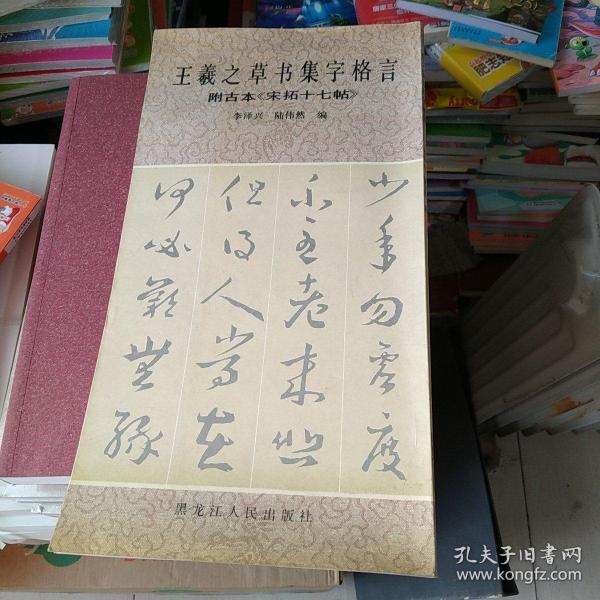 王羲之草书集字格言
附古本《宋拓十七帖》
李泽兴 陆伟然 编
少年勿虚度
不至老来
但得人常在
何必叹無缘
黑龙江人民出版社
孔夫子旧书网
www.kongfz.com